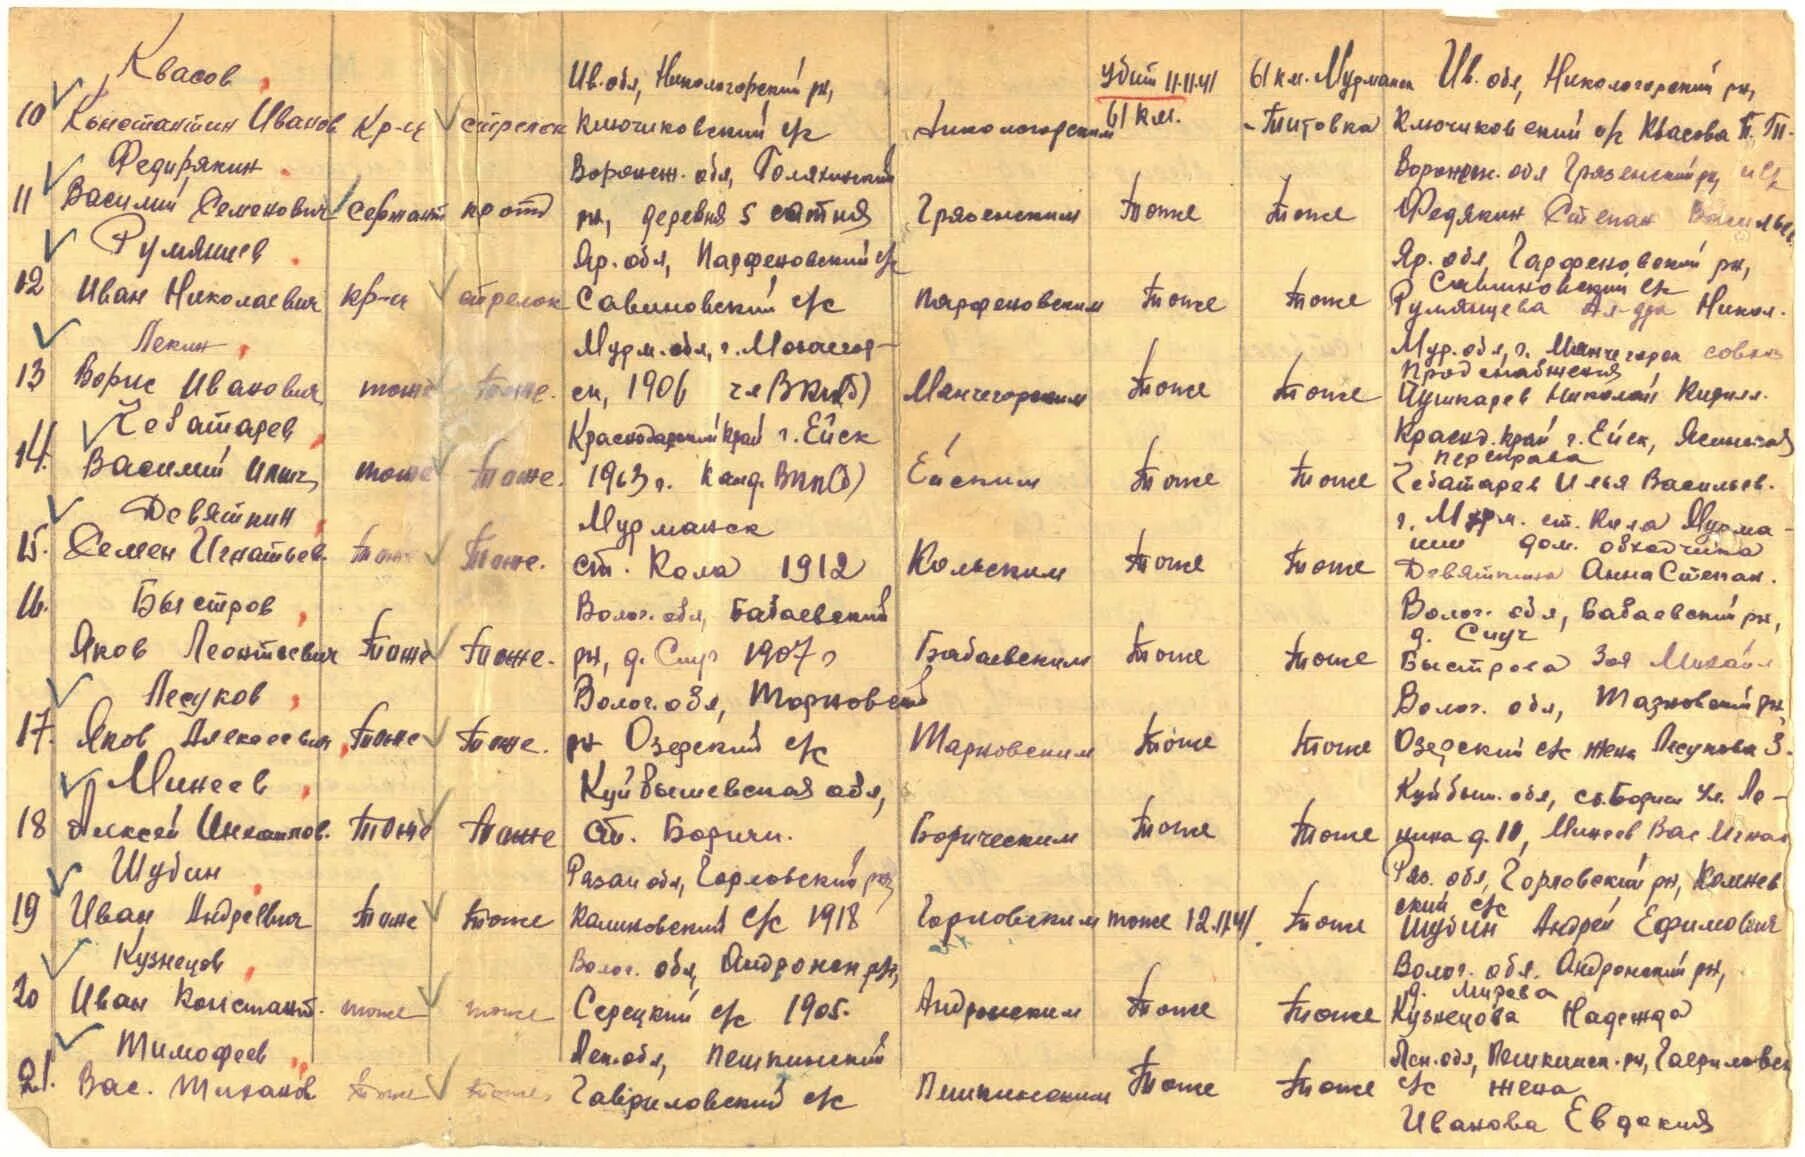 Квасов
Ив. обл, Никологорский рн,
убит 11.11.41
61 км. Мурманск
Ив. обл, Никологорский рн,
10 Константин Иванов Кр-ц стрелок Ключиковский с/с Никологорским 61 км. -Титовка Ключиковский с/с Квасова
Федирякин
Воронеж. обл,
Воронеж. обл Грязенский рн,
11 Василий Семенович сержант рн, деревня 5 сотня Грязенским тоже тоже Федякин Степан
Румянцев
Яр. обл, Парфеновский с/с
Яр. обл, Парфеновский рн,
Савиновский с/с
12 Иван Николаевич кр-ц стрелок Савиновский с/с Парфеновским тоже тоже Румянцева Ал-дра Никол.
Лекин
Мурм. обл, г.
Мур. обл, г. Мончегорск
Продснабжения
13 Борис Иванович тоже тоже. ск, 1906 чл ВКП(б) Мончегорским тоже тоже Пушкарев Николай Кирилл.
Чеботарев
Краснодарский край г. Ейск
Краснд. край г. Ейск,
переправа
14. Василий Ильич тоже тоже. 1913 г. Канд. ВКП(б) Ейским тоже тоже Чеботарев Илья Васильев.
Девяткин
Мурманск
г. Мурм. ст. Кола Мурма-
дом. обходчика
15. Семен Игнатьев. тоже тоже. ст. Кола 1912 Кольским тоже тоже Девяткина Анна Степан.
Быстров
Волог. обл, Бабаевский
Волог. обл, Бабаевский рн,
16. Яков Леонтьевич тоже тоже. рн, д. 1907 г Бабаевским тоже тоже Быстрова Зоя Михайл
Песуков
Волог. обл, Тарновский
Волог. обл, Тарновский рн,
17. Яков Алексеевич тоже тоже. рн Озерский с/с Тарновским тоже тоже Озерский с/с жена Песукова З.
Минеев
Куйбышевская обл,
Куйбыш. обл, ул. Ле-
18 Алексей тоже тоже ст. Боричи. Борическим тоже тоже нина д. 10, Минеев Вас
Шубин
Рязан обл, Горловский рн,
Ряз. обл, Горловский рн,
ский с/с
19 Иван Андреевич тоже тоже Калиновский с/с 1918 Горловским тоже 12.11.41. тоже Шубин Андрей Ефимович
Кузнецов
Волог. обл, Андронен рн,
Волог. обл. Андронский рн,
20 Иван Констант. тоже тоже Серецкий с/с 1905. Андронским тоже тоже Кузнецова Надежда
Тимофеев
Лен. обл, Пешкинский
Лен. обл, Пешкинск. рн, Гавриловск
21. Вас. тоже тоже. Гавриловский с/с Пешкинским тоже тоже с/с жена
Иванова Евдокия